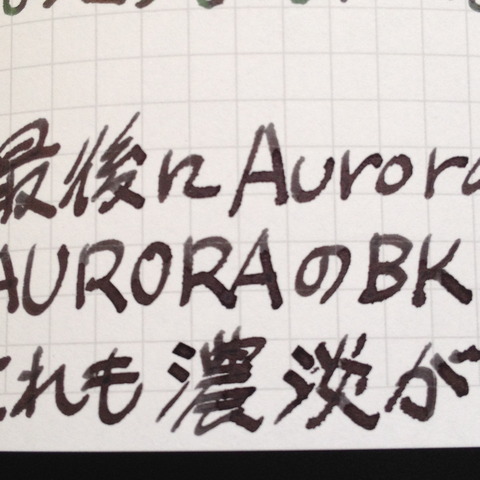 最後にAurora
AURORAのBK
これも濃淡が